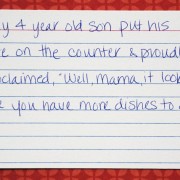 y 4 year old son put his
e on the counter & proudly
claimed, "Well, mama, it look
e you have more dishes to